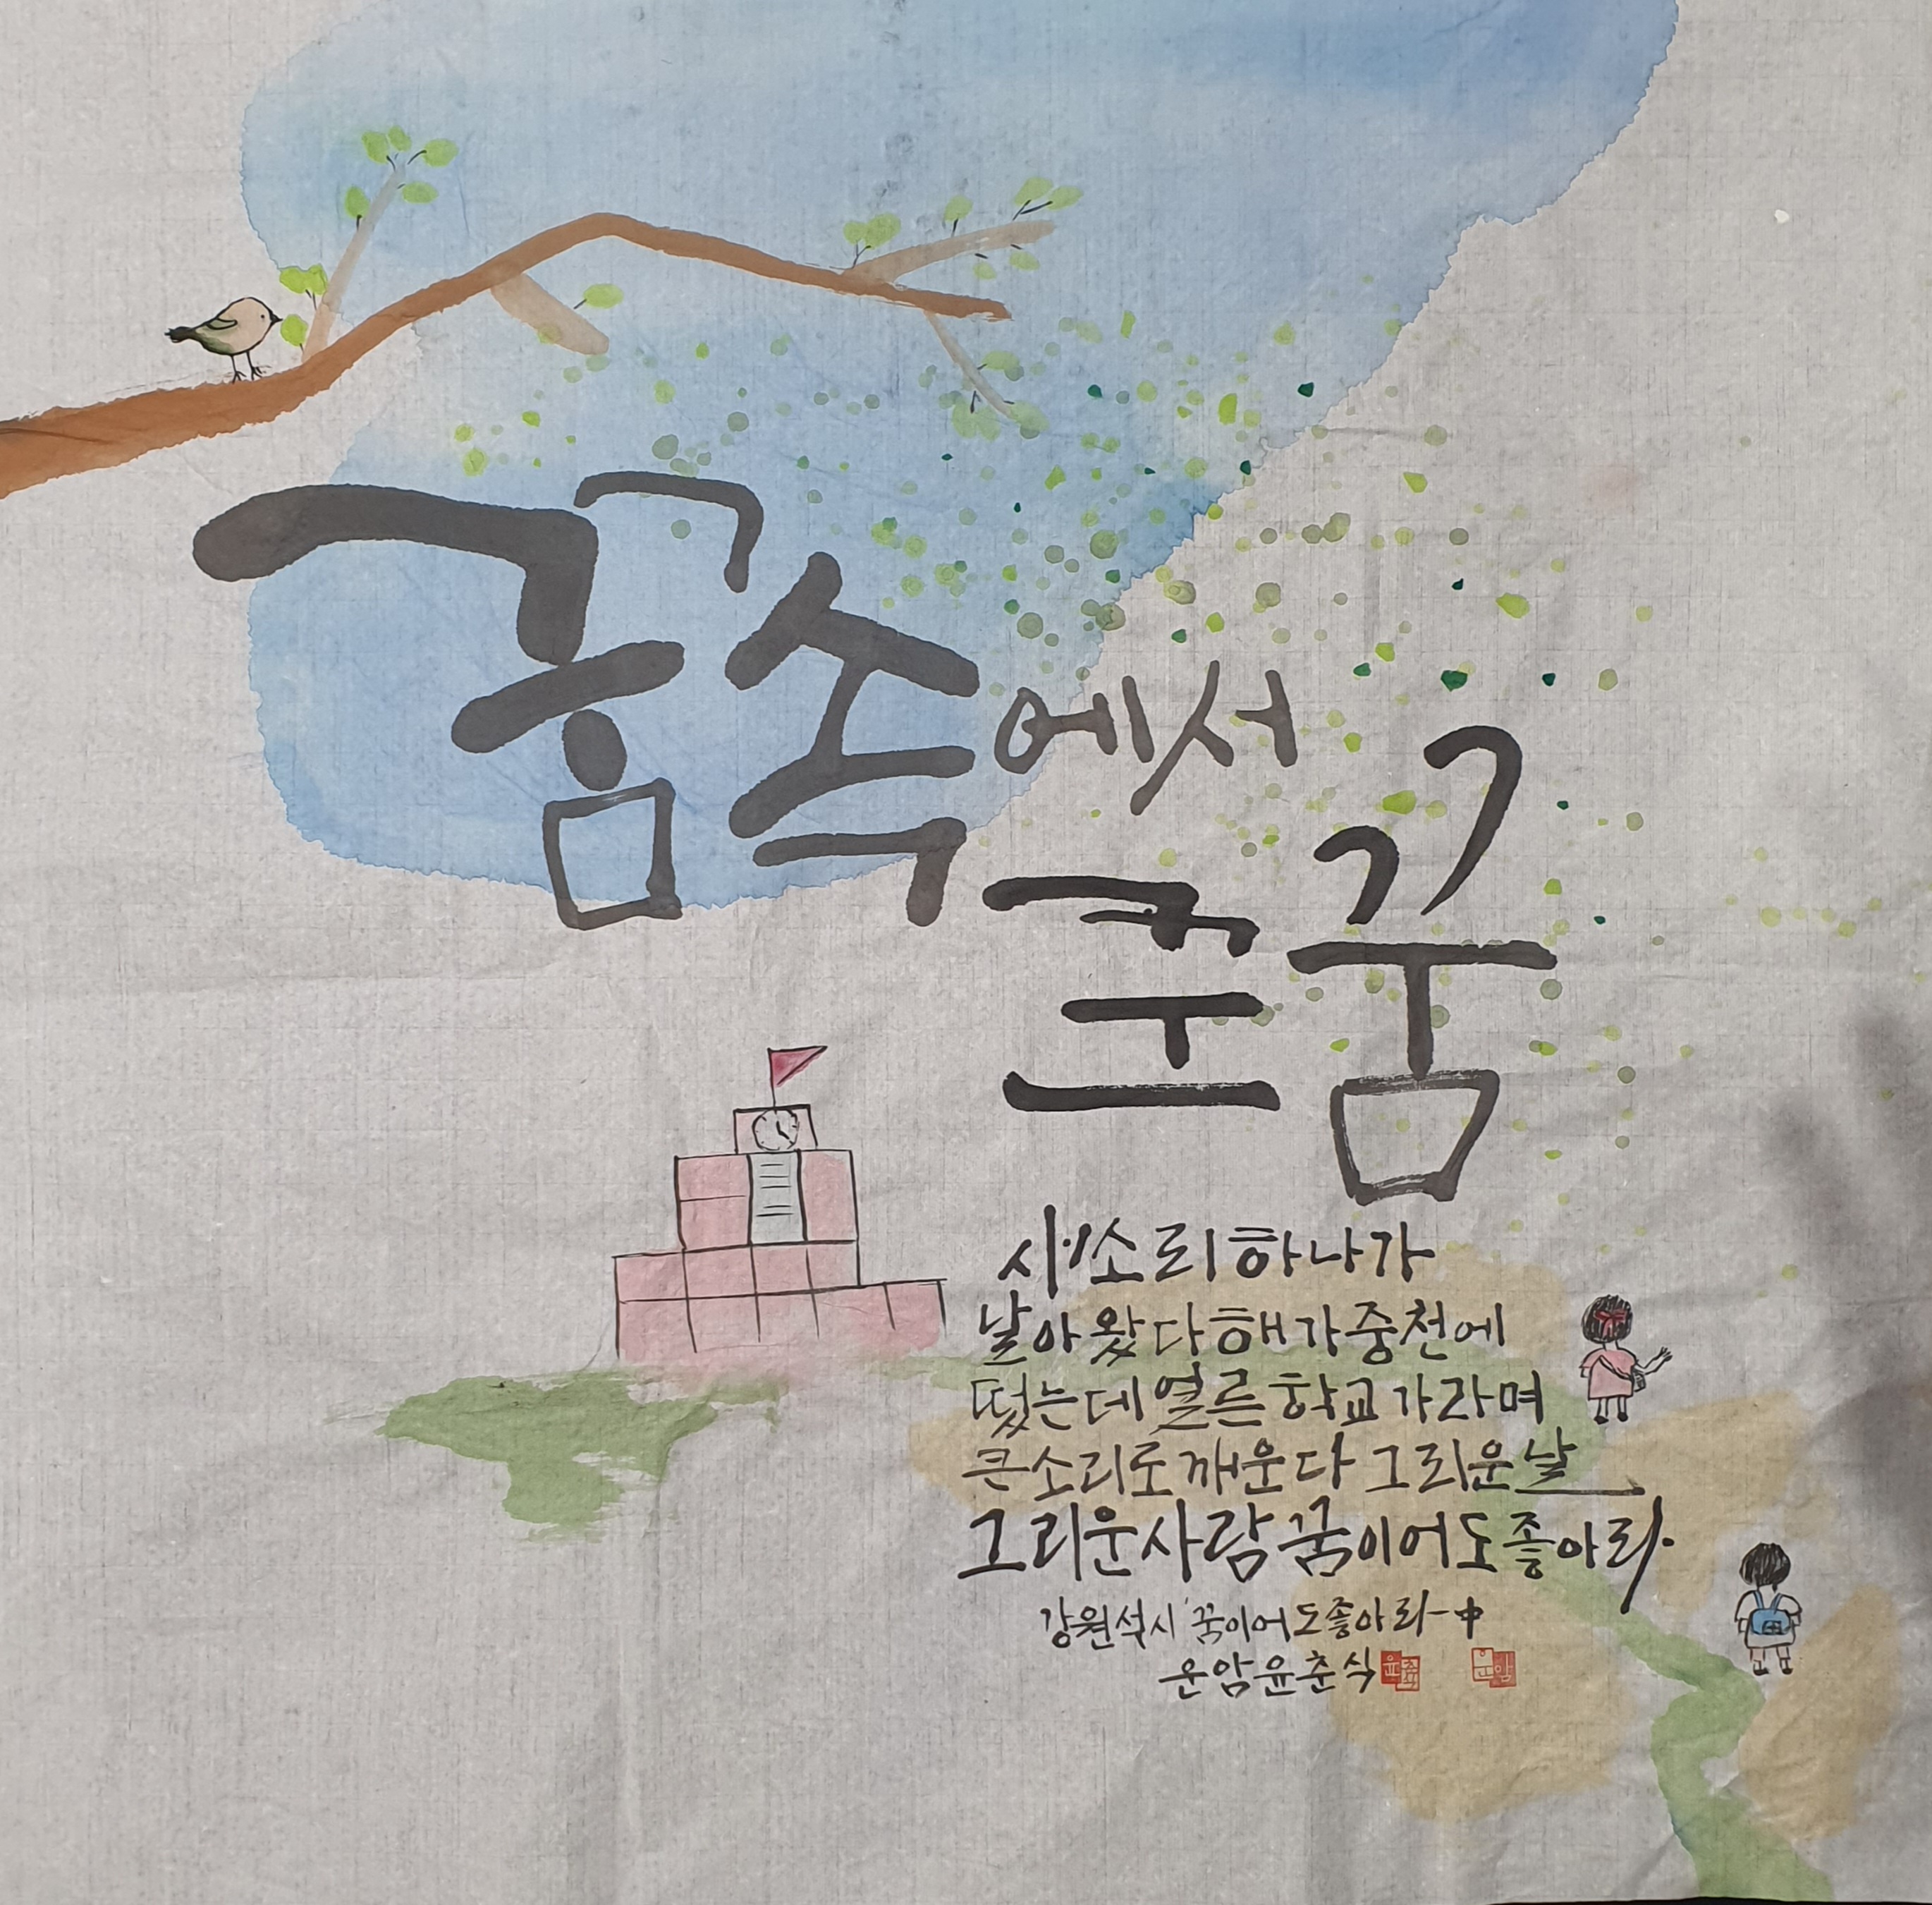 꿈속에서
꾼 꿈
새소리 하나가
날아왔다 해가 중천에
떴는데 얼른 학교 가라며
큰소리로 깨운다 그리운 날
그리운 사람 꿈이어도 좋아라
강원석 시 '꿈이어도 좋아라 - 中
운암 윤춘식
운암